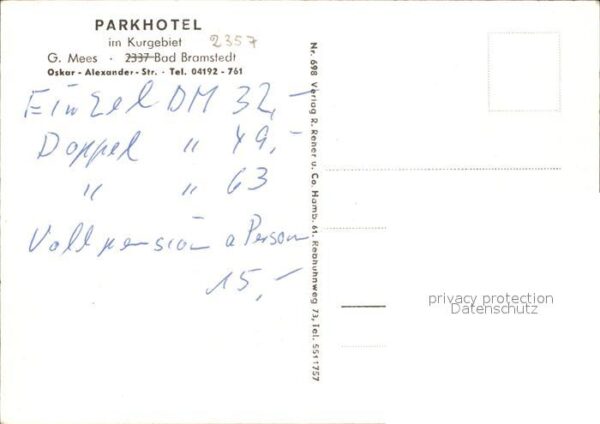 PARKHOTEL
im Kurgebiet 2357
G. Mees · 2337 Bad Bramstedt
Oskar-Alexander-Str. · Tel. 04192-761
Einzel DM 32,-
Doppel " 49,-
" " 63
Vollpension a Person
15,-
Nr. 698 Verlag R. Rener u. Co. Hamb. 61. Rebhuhnweg 73, Tel. 5511757
privacy protection
Datenschutz